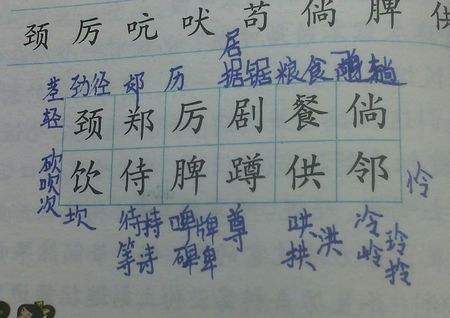 颈厉吭吠苟倘脾供
居
茎劲径郑历据锯粮食趟
轻颈郑厉剧餐倘
砍吹次饮侍脾蹲供邻伶
坎待持啤牌尊哄洪冷玲
等诗碑卑拱岭拎